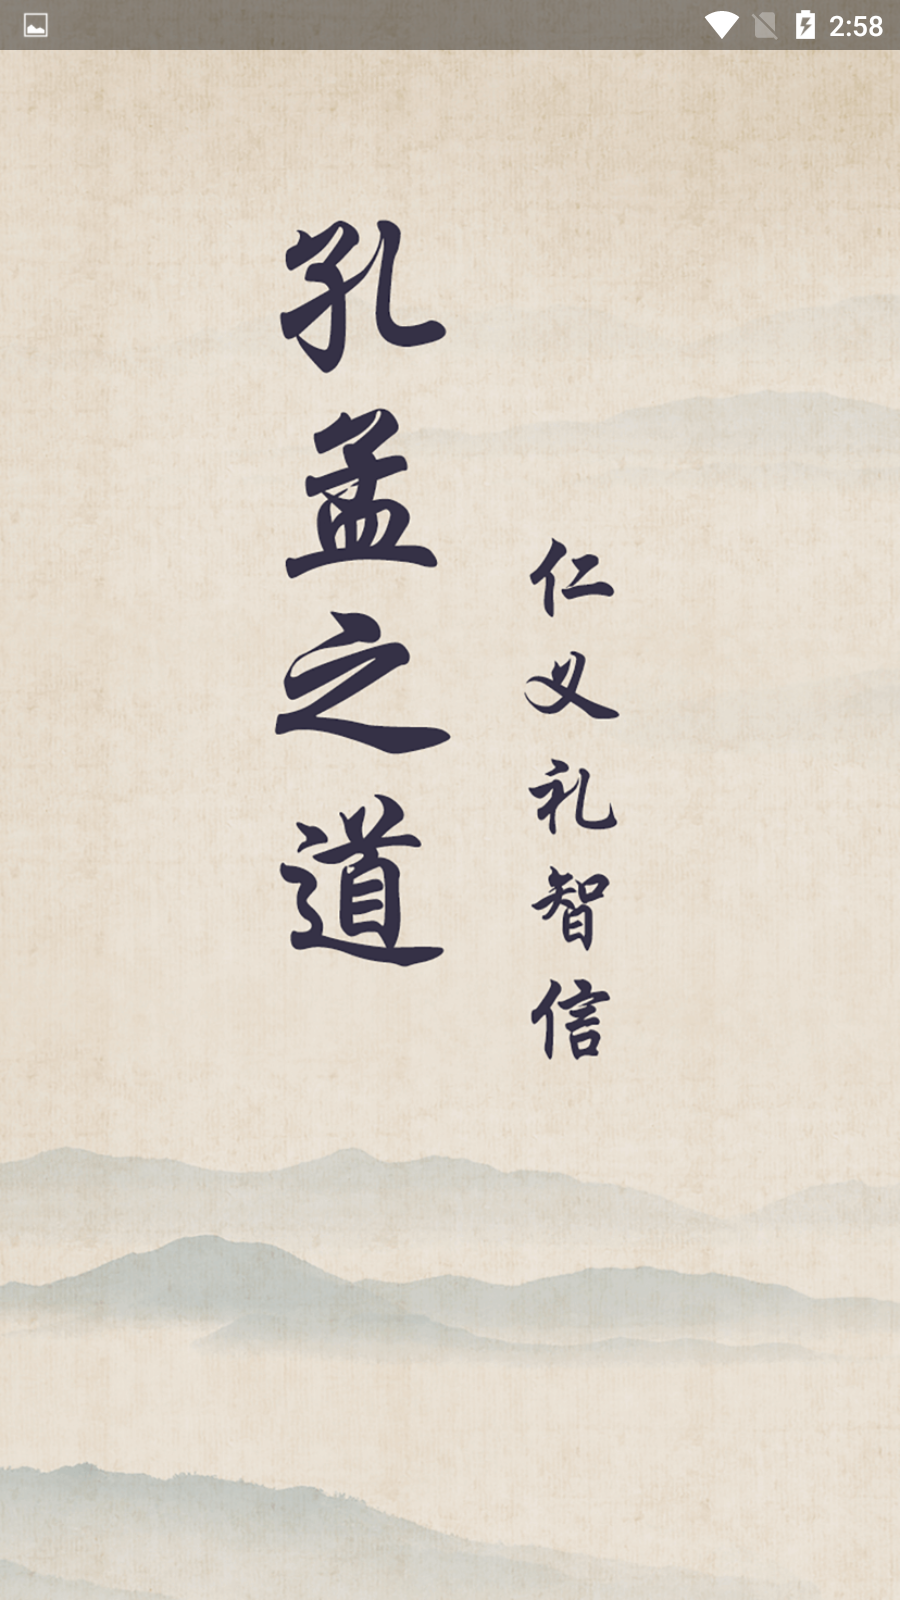 2:58
孔孟之道
仁义礼智信